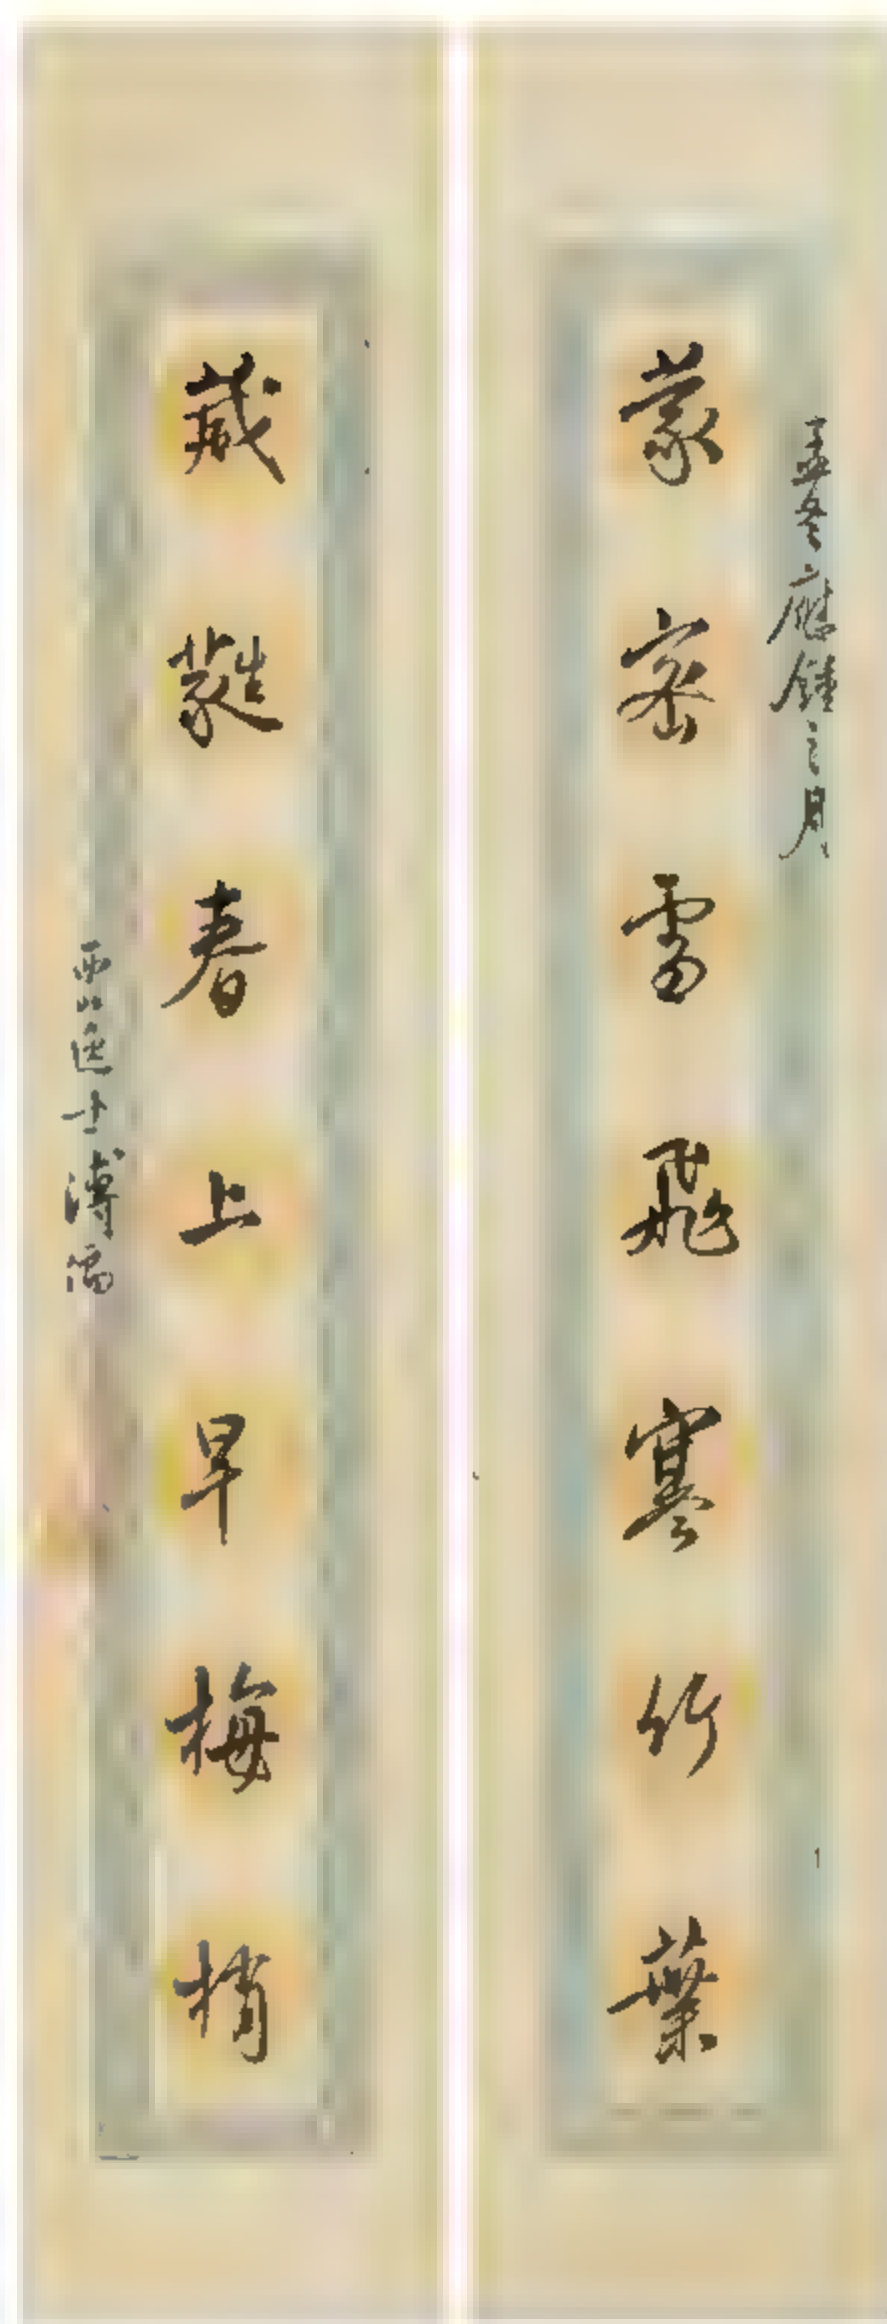 孟冬應鍾之月
蒙密雪飛寒竹葉
葳蕤春上早梅梢
西山逸士溥儒